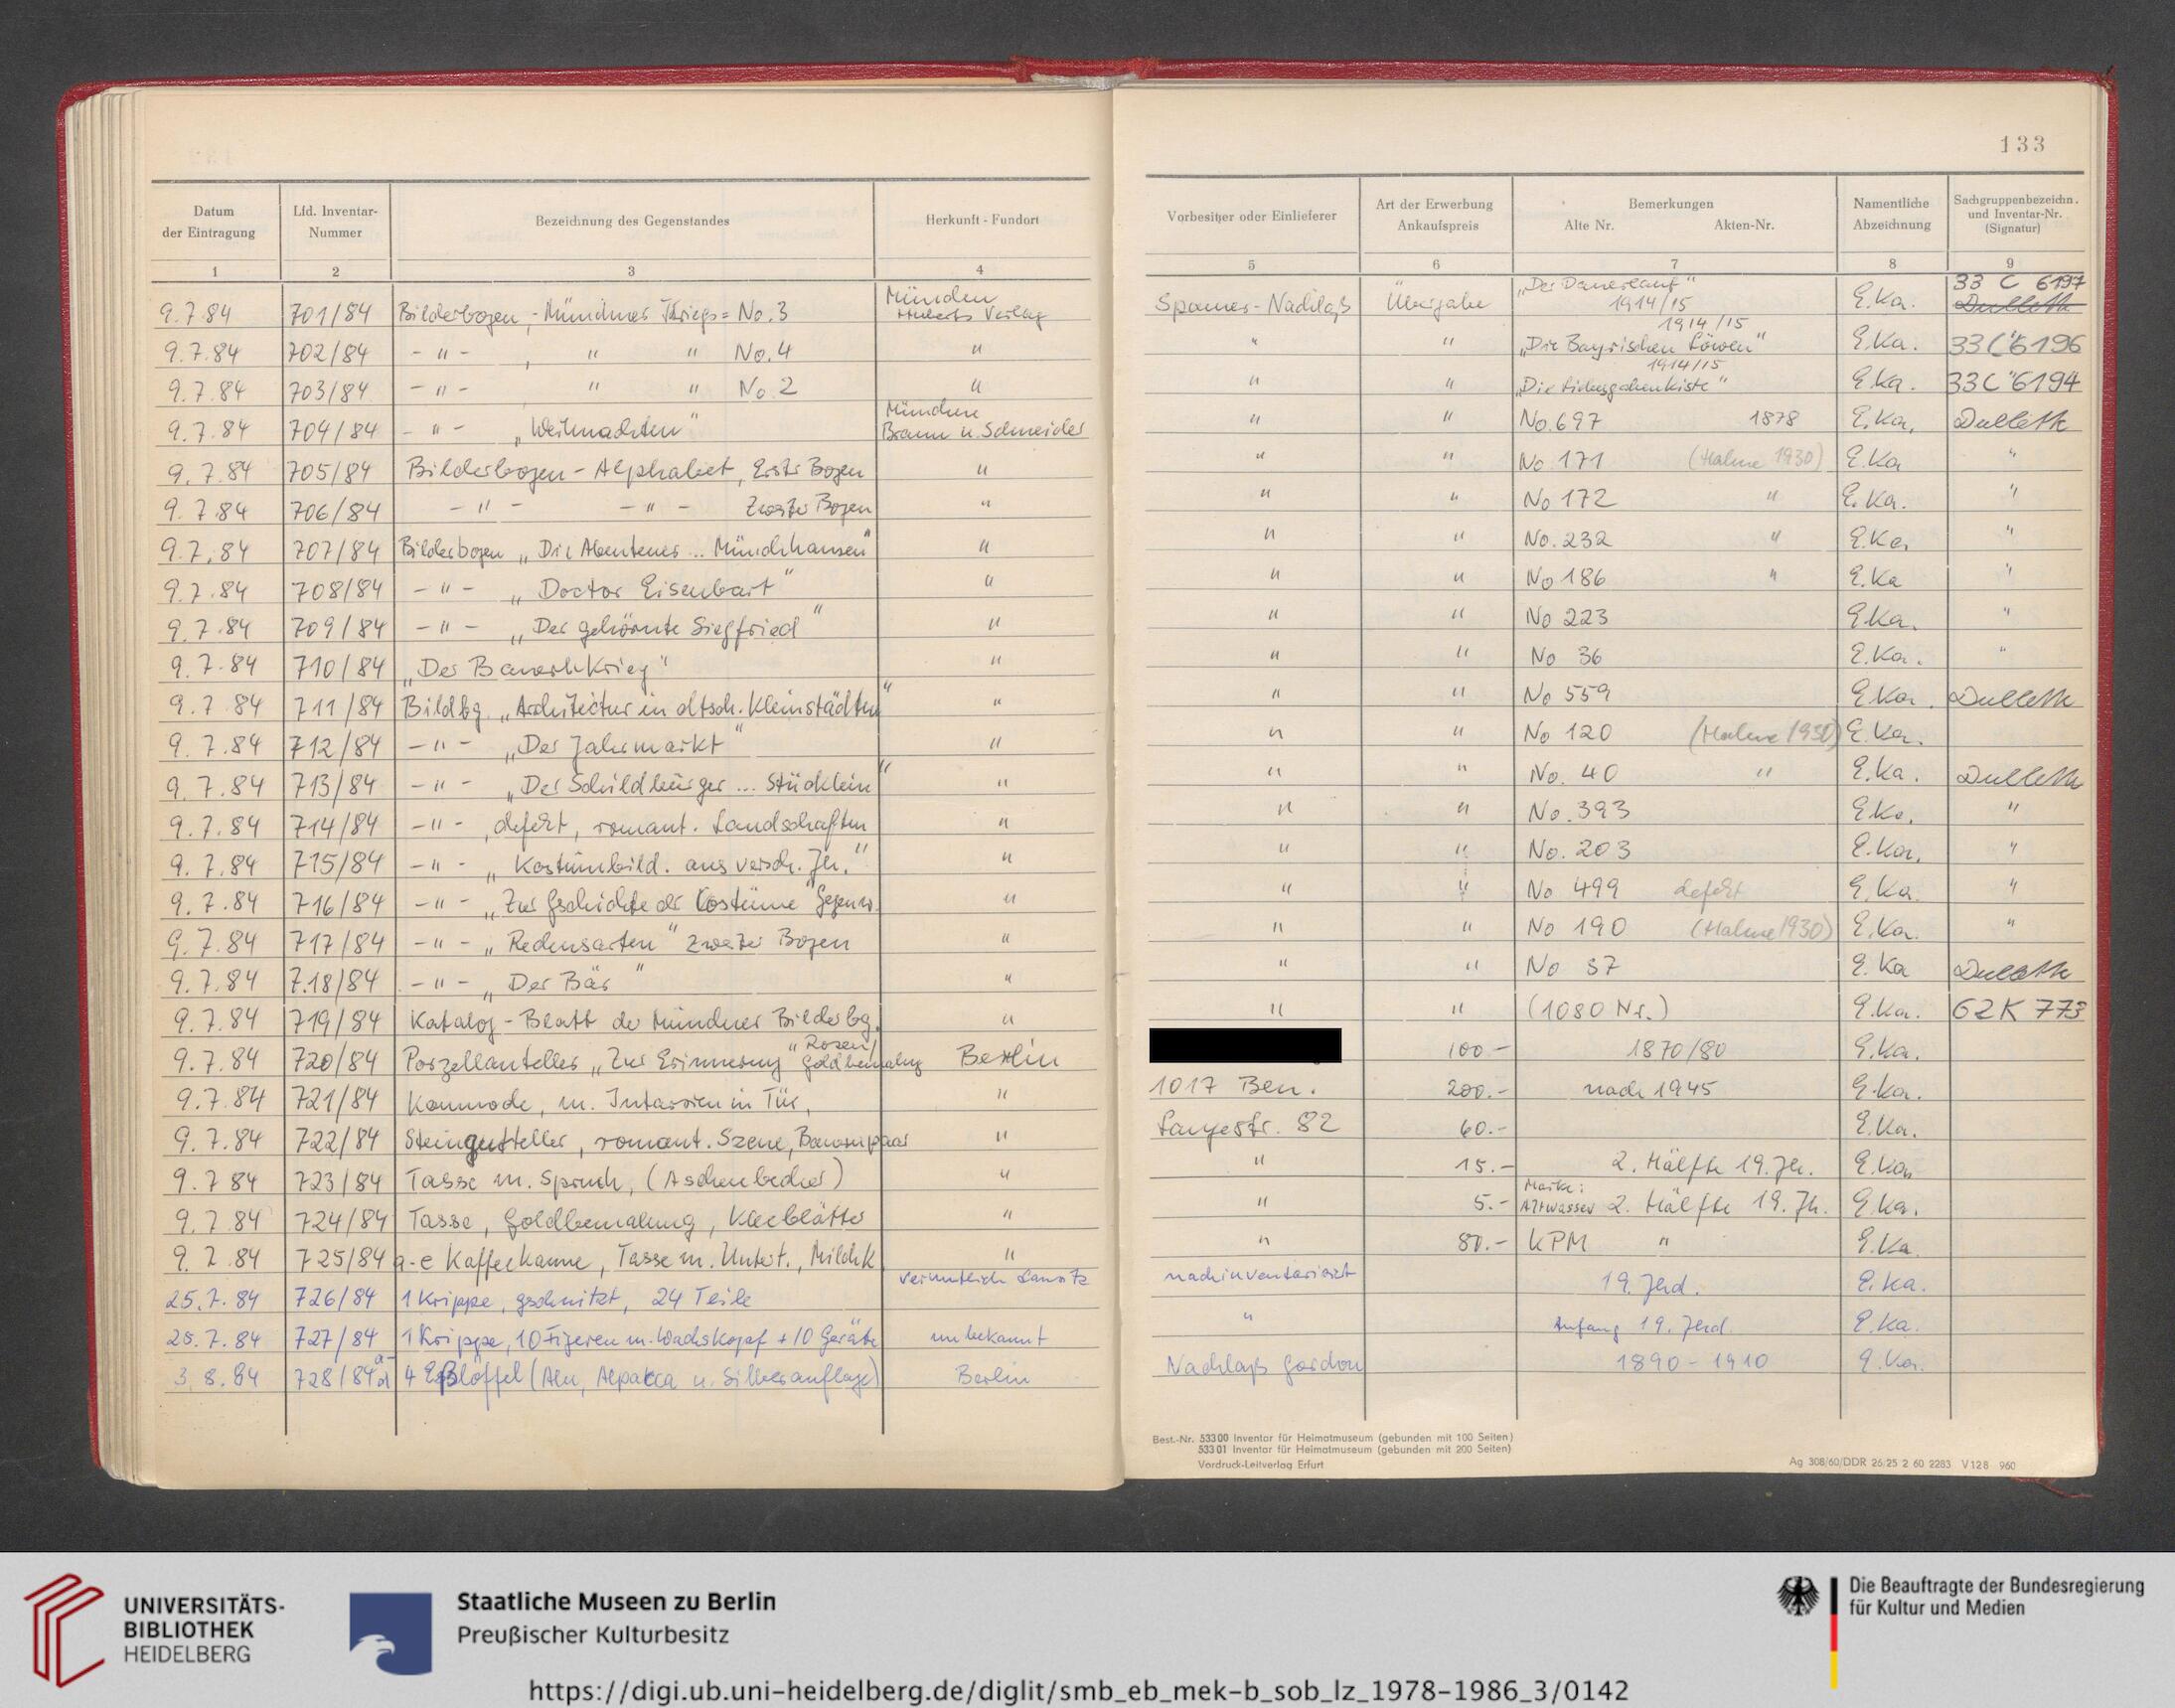 133
Datum der Eintragung | Lfd. Inventar-Nummer | Bezeichnung des Gegenstandes | Herkunft - Fundort | Vorbesitzer oder Einlieferer | Art der Erwerbung Ankaufspreis | Bemerkungen Alte Nr. Akten-Nr. | Namentliche Abzeichnung | Sachgruppenbezeichn. und Inventar-Nr. (Signatur)
1 | 2 | 3 | 4 | 5 | 6 | 7 | 8 | 9
9.7.84 | 701/84 | Bilderbogen, - Münchner Kriegs= No. 3 | München Verlag | Spamer-Nachlaß | Übergabe | „Der Dauerlauf“ 1914/15 | E.Ka. | 33 C 6197
9.7.84 | 702/84 | - " - , " " No. 4 | " | " | " | 1914/15 „Die Bayrischen Löwen“ | E.Ka. | 33 C 6196
9.7.84 | 703/84 | - " - , " " No. 2 | " | " | " | 1914/15 „Die | E.Ka. | 33 C 6194
9.7.84 | 704/84 | - " - „Weihnachten“ | München Braun u. Schneider | " | " | No. 697 1878 | E.Ka.
9.7.84 | 705/84 | Bilderbogen - Alphabet, Erster Bogen | " | " | " | No 171 (1930) | E.Ka | "
9.7.84 | 706/84 | - " - - " - Zweiter Bogen | " | " | " | No 172 " | E.Ka. | "
9.7.84 | 707/84 | Bilderbogen „Die Abenteuer ... Münchhausen“ | " | " | " | No. 232 " | E.Ka. | "
9.7.84 | 708/84 | - " - „Doctor Eisenbart“ | " | " | " | No 186 " | E.Ka | "
9.7.84 | 709/84 | - " - „Der gehörnte Siegfried“ | " | " | " | No 223 | E.Ka. | "
9.7.84 | 710/84 | „Der Bauernkrieg“ | " | " | " | No 36 | E.Ka. | "
9.7.84 | 711/84 | Bildbg. „Architectur in dtsch. Kleinstädten“ | " | " | " | No 559 | E.Ka.
9.7.84 | 712/84 | - " - „Der Jahrmarkt“ | " | " | " | No 120 (1930) | E.Ka.
9.7.84 | 713/84 | - " - „Der Schildbürger ... Stücklein“ | " | " | " | No. 40 " | E.Ka.
9.7.84 | 714/84 | - " - , defekt, romant. Landschaften | " | " | " | No. 393 | E.Ka. | "
9.7.84 | 715/84 | - " - „Kostümbild. aus versch. Jh.“ | " | " | " | No. 203 | E.Ka. | "
9.7.84 | 716/84 | - " - „Zur Gschichte der Costüme“ Gegenw. | " | " | " | No 499 defekt | E.Ka. | "
9.7.84 | 717/84 | - " - „Redensarten“ Zweiter Bogen | " | " | " | No 190 (1930) | E.Ka. | "
9.7.84 | 718/84 | - " - „Der Bär“ | " | " | " | No 37 | E.Ka
9.7.84 | 719/84 | Katalog-Blatt der Münchner Bilderbg. | " | " | " | (1080 Nr.) | E.Ka. | 62 K 773
9.7.84 | 720/84 | Porzellanteller „Zur Erinnerung“ Rosen/Goldbemalung | Berlin | 100.- | 1870/80 | E.Ka.
9.7.84 | 721/84 | Kommode, m. Intarsien in Tür, | " | 1017 Bln. | 200.- | nach 1945 | E.Ka.
9.7.84 | 722/84 | Steingutteller, romant. Szene, Bauernpaar | " | Langestr. 82 | 60.- | E.Ka.
9.7.84 | 723/84 | Tasse m. Spruch, (Aschenbecher) | " | " | 15.- | 2. Hälfte 19. Jh. | E.Ka.
9.7.84 | 724/84 | Tasse, Goldbemalung, Kleeblätter | " | " | 5.- | Marke: Altwasser 2. Hälfte 19. Jh. | E.Ka.
9.7.84 | 725/84 a-e | Kaffeekanne, Tasse m. Untert., Milchk. | " | " | 80.- | KPM " | E.Ka.
25.7.84 | 726/84 | 1 Krippe, gschnitzt, 24 Teile | vermutlich Lausitz | nachinventarisiert | 19. Jhd. | E.Ka.
25.7.84 | 727/84 | 1 Krippe, 10 Figuren m. Wachskopf + 10 Geräte | unbekannt | " | Anfang 19. Jhd. | E.Ka.
3.8.84 | 728/84 a-d | 4 Eßlöffel (Alu, Alpacca u. Silberauflage) | Berlin | Nachlaß Gordon | 1890 - 1910 | E.Ka.
Best.-Nr. 53300 Inventar für Heimatmuseum (gebunden mit 100 Seiten)
53301 Inventar für Heimatmuseum (gebunden mit 200 Seiten)
Vordruck-Leitverlag Erfurt
Ag 308/60/DDR 26 25 2 60 2283 V 128 960
UNIVERSITÄTS-
BIBLIOTHEK
HEIDELBERG
Staatliche Museen zu Berlin
Preußischer Kulturbesitz
Die Beauftragte der Bundesregierung
für Kultur und Medien
https://digi.ub.uni-heidelberg.de/diglit/smb_eb_mek-b_sob_lz_1978-1986_3/0142